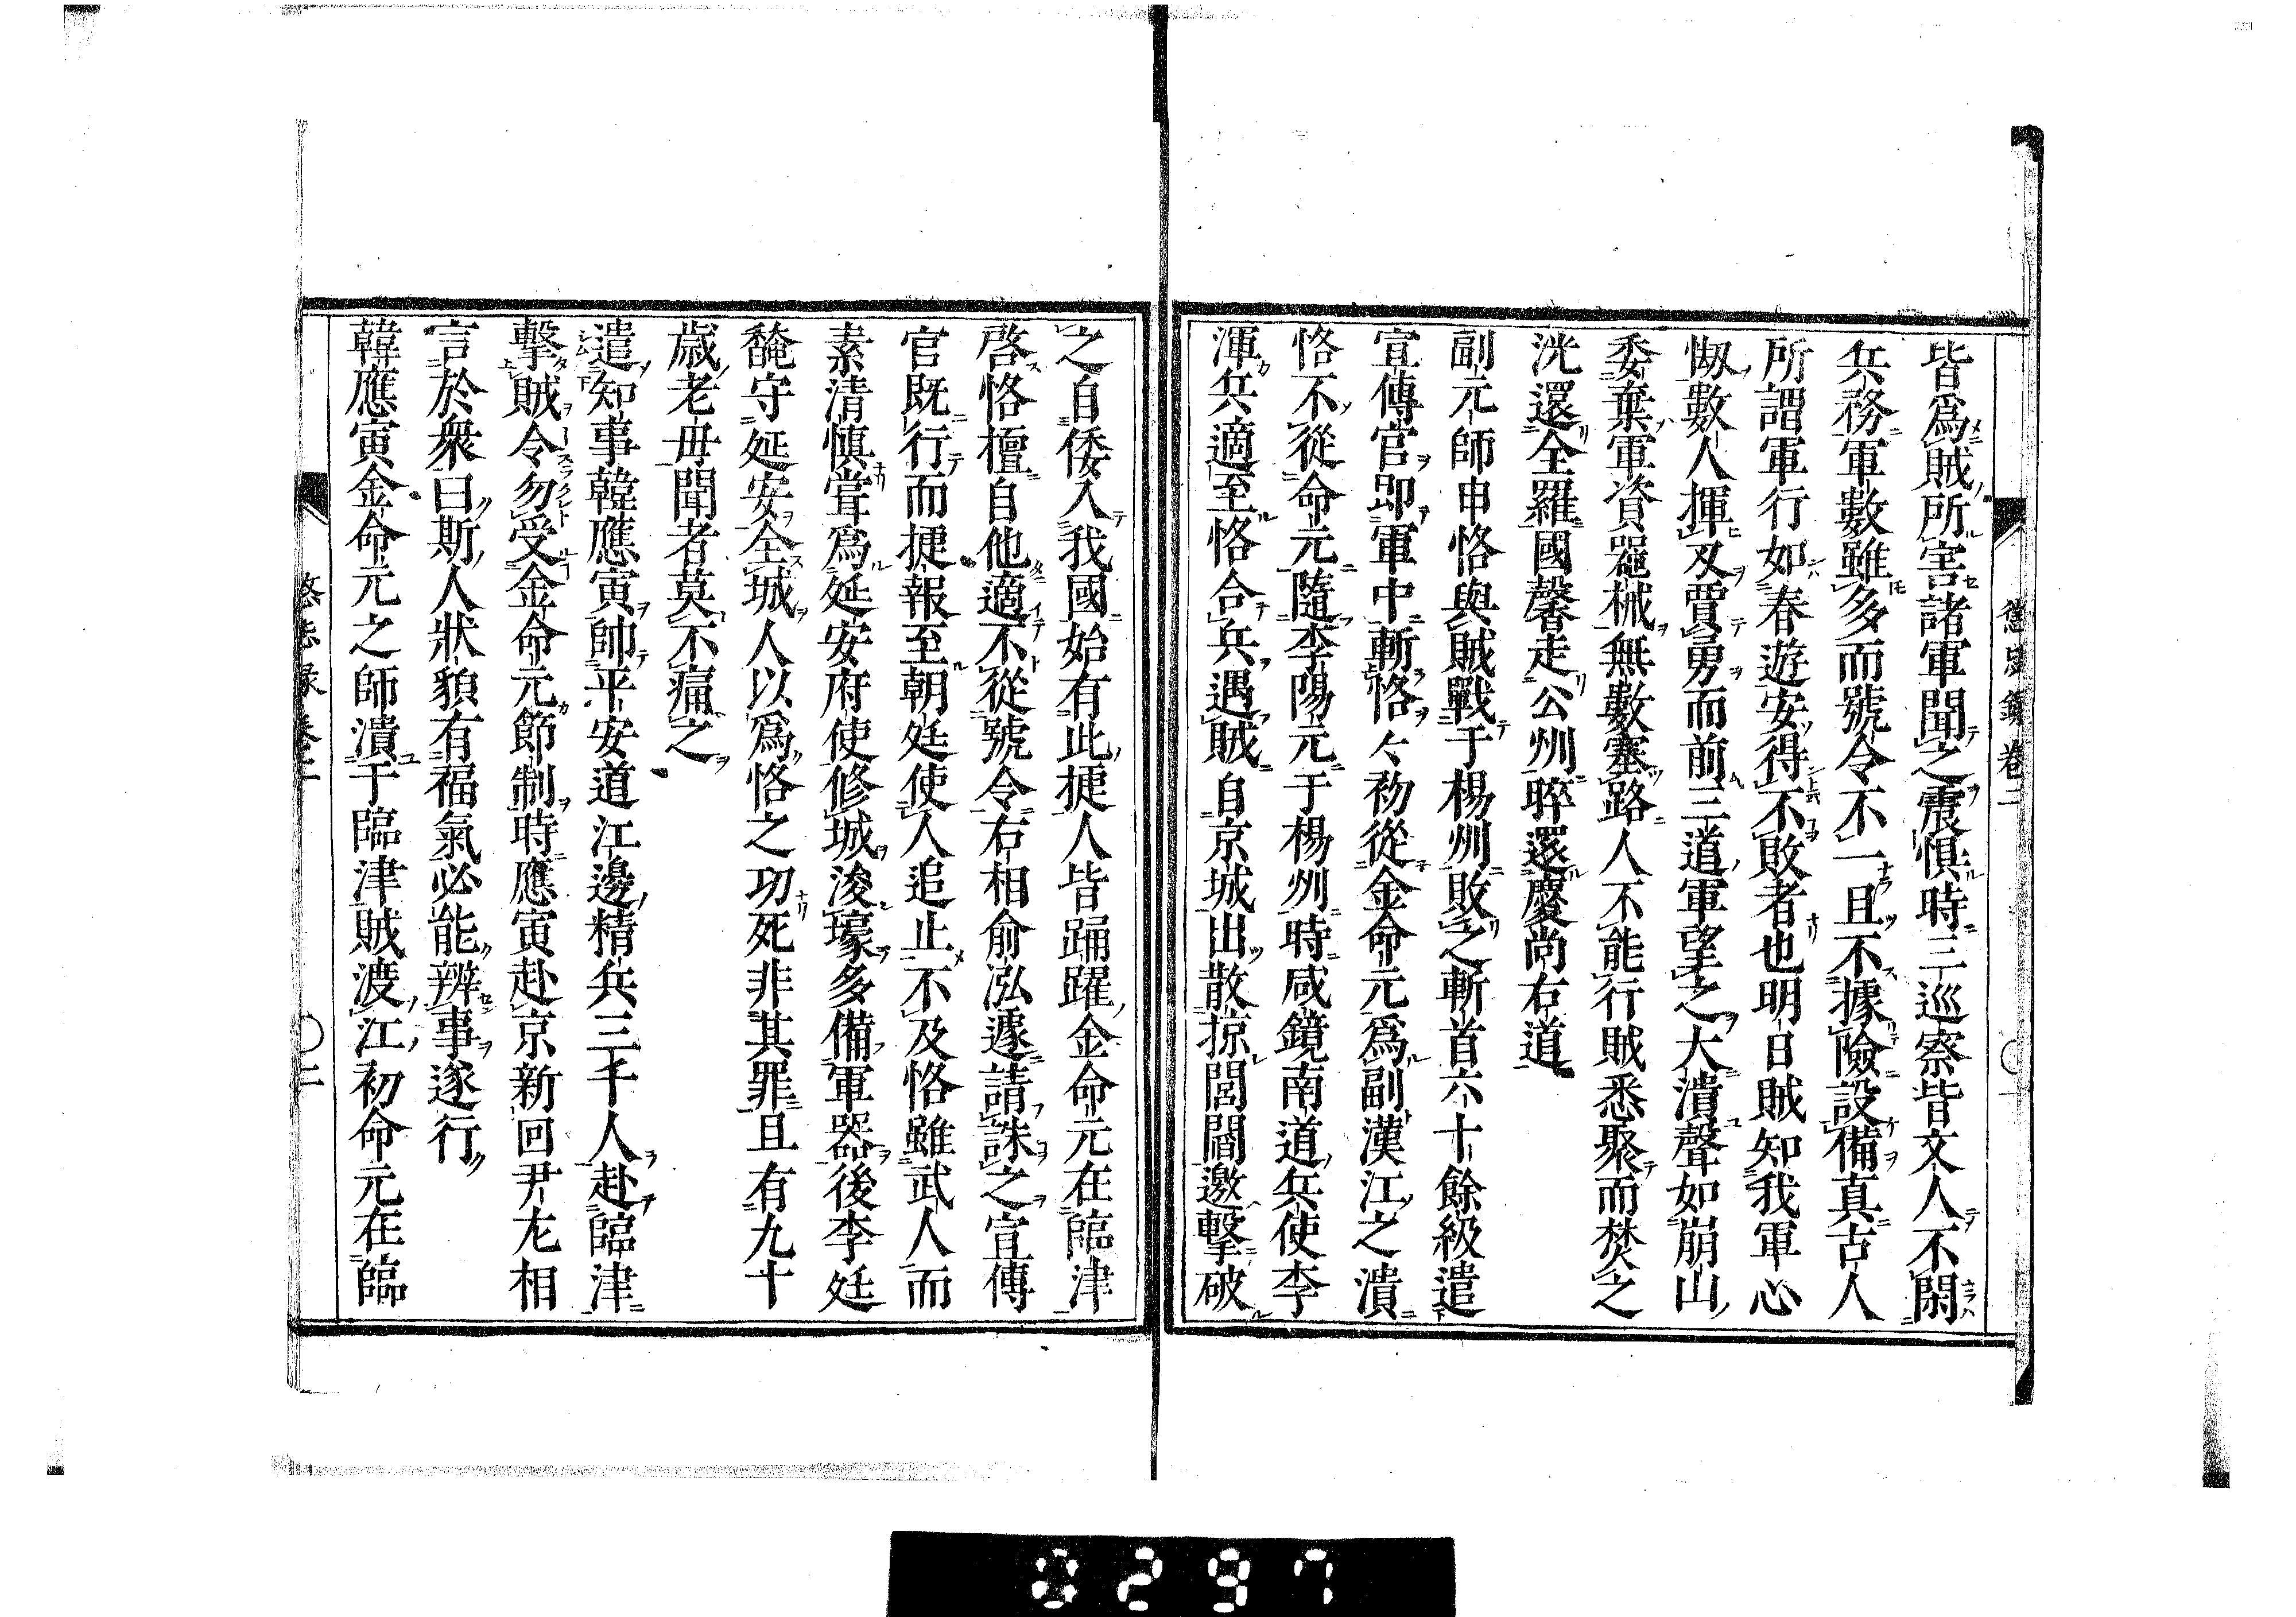 皆爲賊所害諸軍聞之震惧時三巡察皆文人不閑
兵務軍數雖多而號令不一且不據險設備真古人
所謂軍行如春遊安得不敗者也明日賊知我軍心
㥘數人揮刄賈勇而前三道軍望之大潰聲如崩山
委棄軍資噐械無數塞路人不能行賊悉聚而焚之
洸還全羅國馨走公州晬還慶尚右道
副元師申恪與賊戰于楊州敗之斬首六十餘級遣
宣傳官即軍中斬恪々初從金命元爲副漢江之潰
恪不從命元隨李陽元于楊州時咸鏡南道兵使李
渾兵適至恪合兵遇賊自京城出散掠閭閻邀擊破
之自倭入我國始有此捷人皆踊躍金命元在臨津
啓恪擅自他適不從號令右相俞泓遽請誅之宣傳
官既行而捷報至朝廷使人追止不及恪雖武人而
素清慎嘗爲延安府使修城浚壕多備軍器後李廷
馣守延安全城人以爲恪之功死非其罪且有九十
歳老母聞者莫不痛之
遣知事韓應寅帥平安道江邊精兵三千人赴臨津
擊賊令勿受金命元節制時應寅赴京新回尹左相
言於衆曰斯人狀貌有福氣必能辨事遂行
韓應寅金命元之師潰于臨津賊渡江初命元在臨
懲毖録 卷二
二
0297